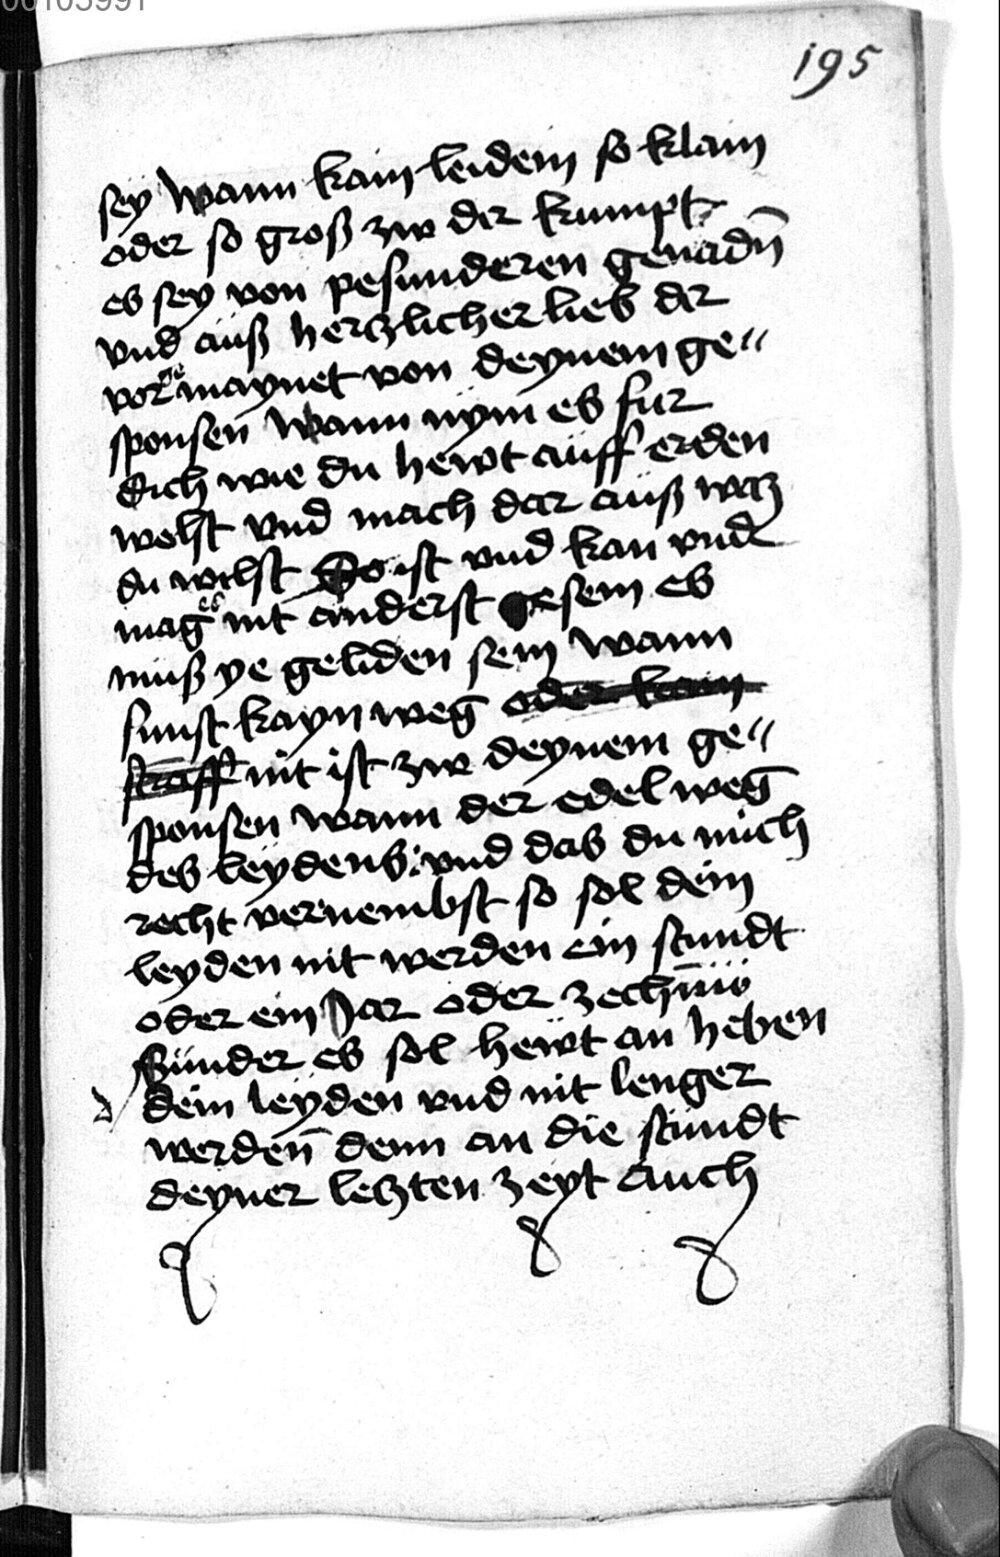 00103991
195
sey wann kain leidem so klain
oder so groß zw der kumpt
es sey von pesunderen genadn̄
vnd auß hertzlicher lieb der
vor maynet von deynem ge〃
sponsen wann nym es fur
dich wie du hewt auff erden
welst vnd mach dar auß waz
du wilst So ist vnd kan vnd
mag es nit anderst gesein es
muß ye geliden sein wann
sunst kayn weg oder kain
straff nit ist zw deynem ge〃
sponsen wann der edel weg
des leydens: vnd das du mich
recht vernembst so sol dein
leyden nit werden ein stundt
oder ein Jar oder zechniü
Sunder es sol hewt an heben
dein leyden vnd nit lenger
werden̄ denn an die stundt
deyner letzten zeyt auch